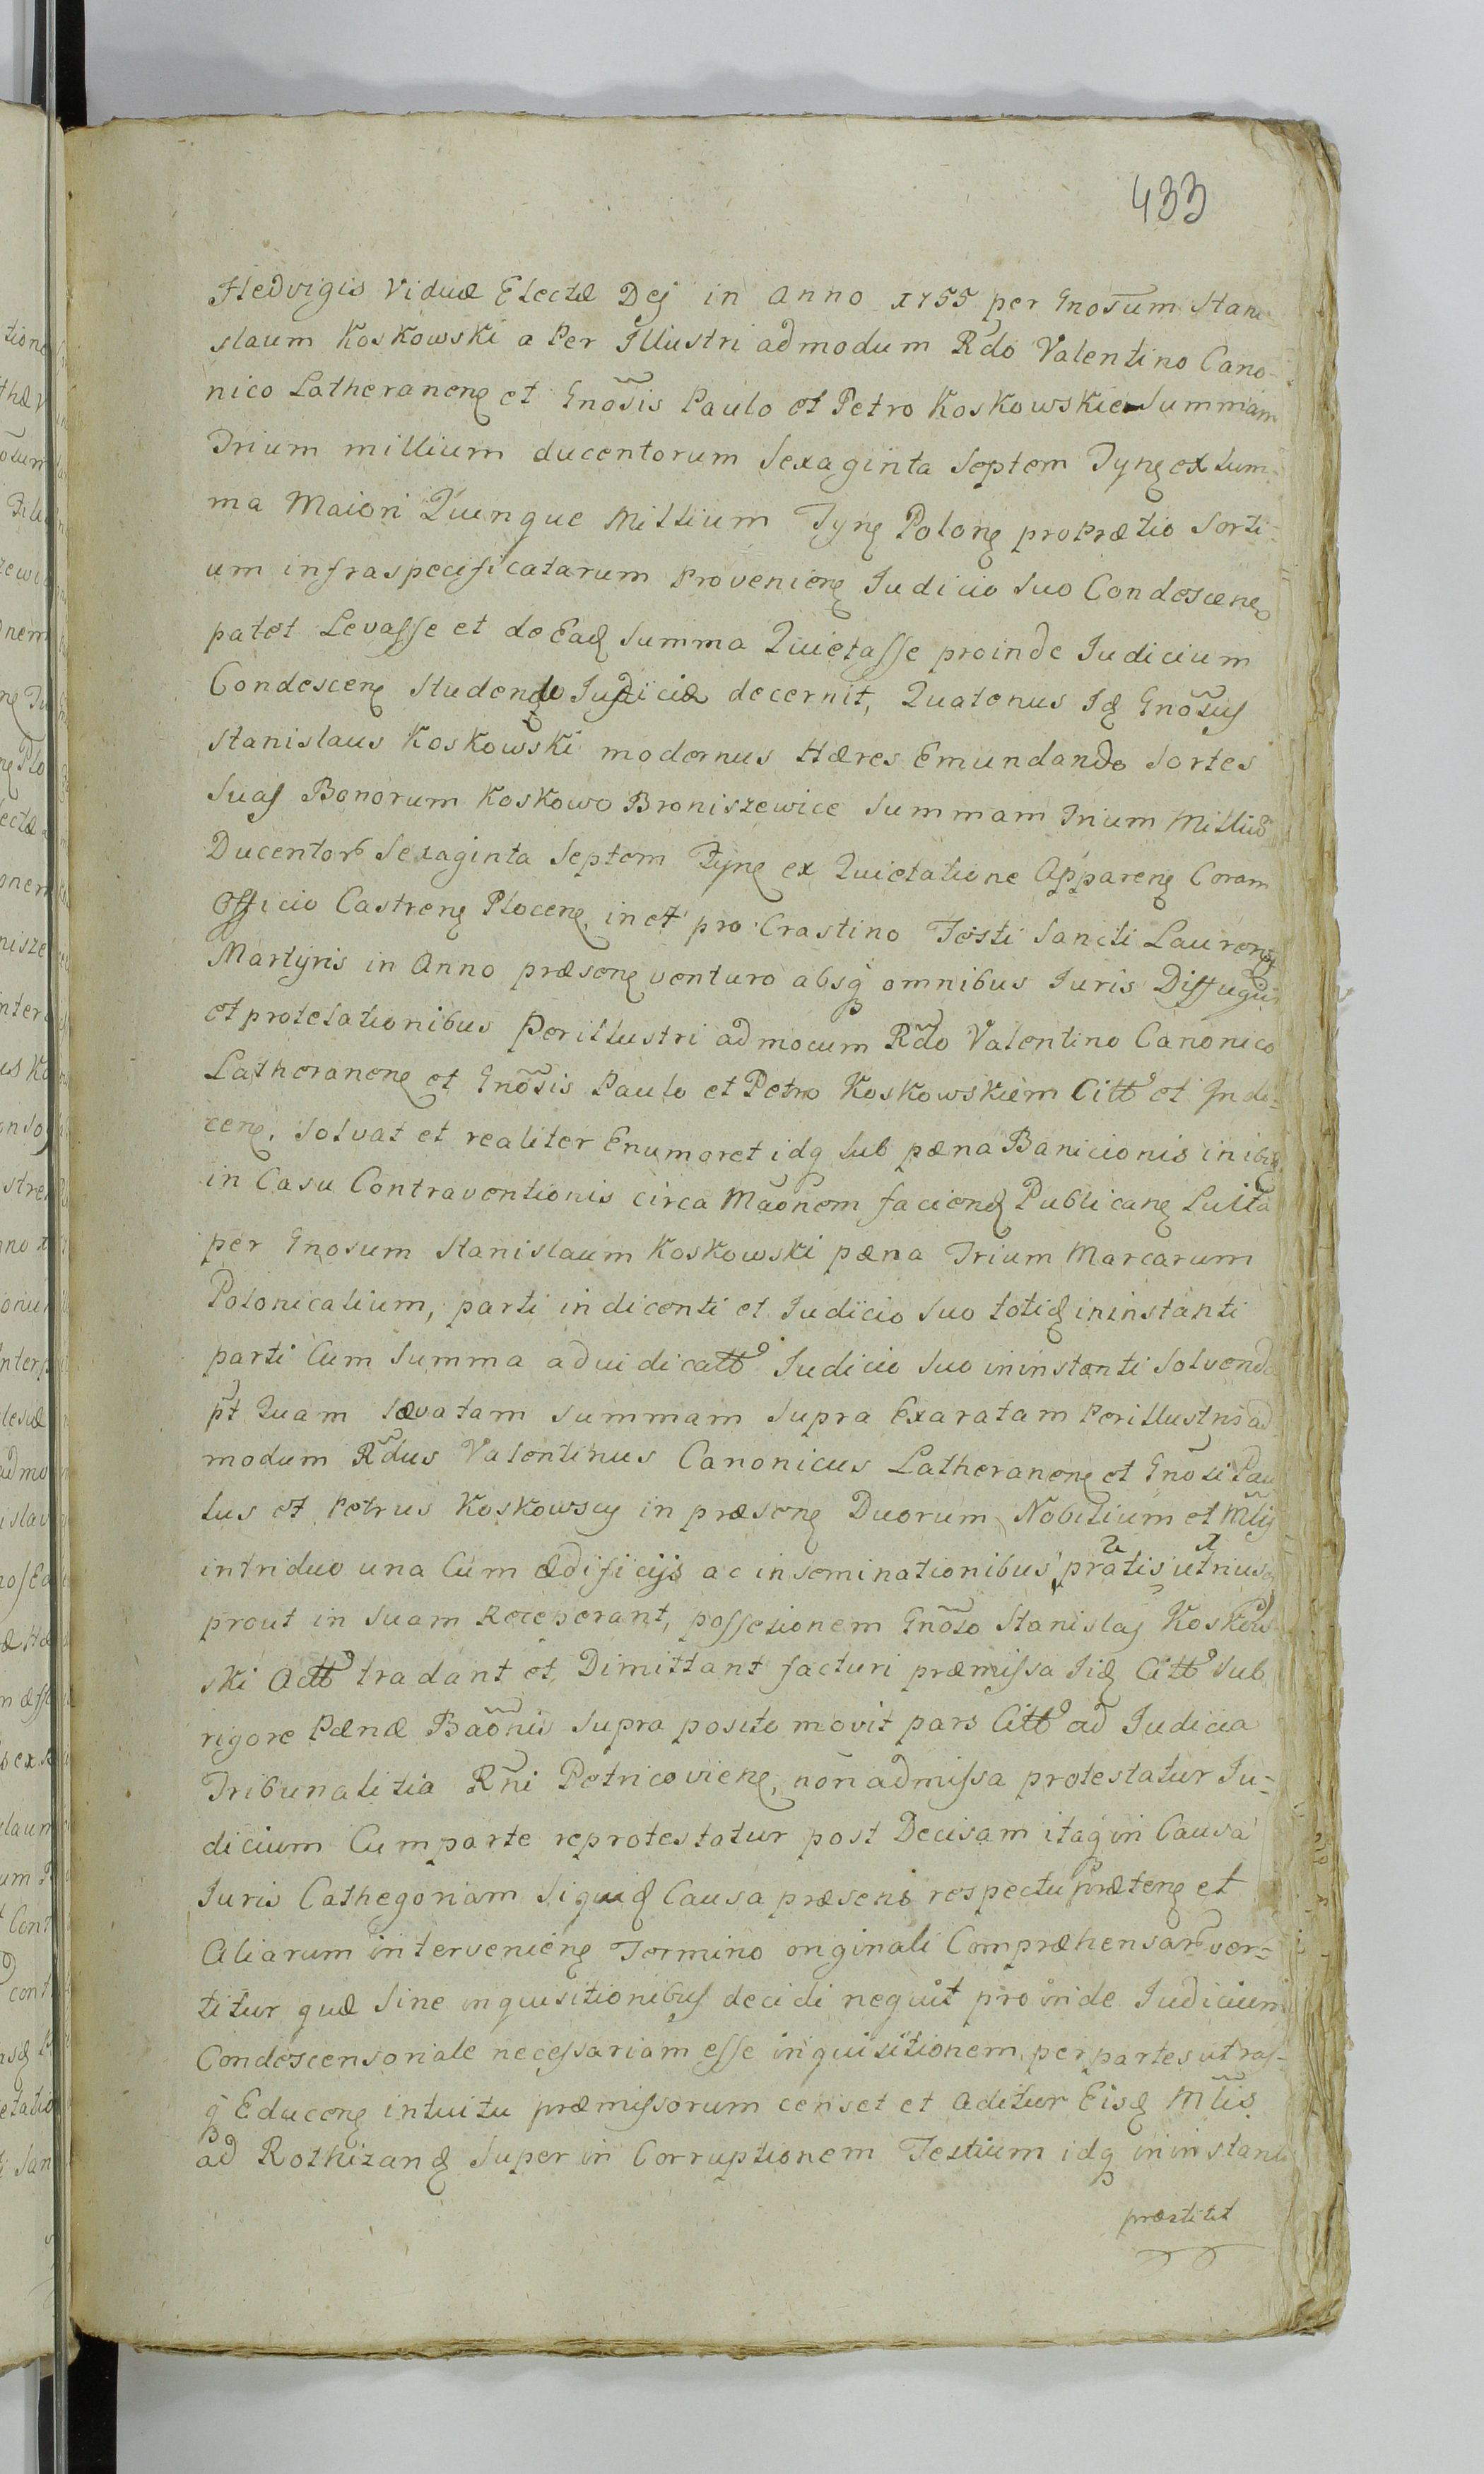 433
Hedvigis Viduæ Electæ Dej in Anno 1755 per Gnosum Stani-
slaum Koskowski a Per Illustri admodum Rdo Valentino Cano-
nico Latheranen et Gnosis Paulo et Petro Koskowskie Summam
Trium millium ducentorum Sexaginta Septem Tyn ex Sum-
ma Maiori Quinque Millium Tyn Polon pro Prætio Sorti-
um infraspecificatarum Provenien Iudicio Suo Condescen
patet Levasse et de Ead Summa Quietasse proinde Iudicium
Condescen Studend Iudicia decernit, Quatenus Id Gnosus
Stanislaus Koskowski modernus Hæres Emundando Sortes
Suas Bonorum Koskowo Broniszewice Summam Trium Milliū
Ducentor Sexaginta Septem Tyn ex Quietatione Apparen Coram
Officio Castren Plocen, in et pro Crastino Festi Sancti Lauren
Martyris in Anno præsen venturo absq omnibus Iuris Diffugiis
et protelationibus Perillustri admocum Rdo Valentino Canonico
Latheranen et Gnosis Paulo et Petro Koskowskiem Citto et Indi-
cen, Solvat et realiter Enumeret idq Sub pæna Banicionis inibi
in Casu Contraventionis circa Maonem faciend Publican Luita
per Gnosum Stanislaum Koskowski pæna Trium Marcarum
Polonicalium, parti indicenti et Iudicio Suo totid ininstanti
parti Cum Summa adiudicatto Iudicio Suo ininstanti Solvenda
pt Quam Levatam Summam Supra Exaratam Perillustris ad
modum Rdus Valentinus Canonicus Latheranen et Gnosi Pau
lus et Petrus Koskowscy in præsen Duorum Nobilium et Mlij
intriduo una Cum ædificijs ac inseminationibus pratis utriusq
prout in Suam Receperant, possesionem Gnoso Stanislaj Koskow
ski Actto tradant et Dimittant facturi præmissa Iid Citto Sub
rigore Pænæ Baonis Supra posito movit pars Citto ad Iudicia
Tribunalitia Rni Petricovien, non admissa protestatur Iu-
dicium Cum parte reprotestatur post Decisam itaq in Causa
Iuris Cathegoriam Siquid Causa præsens respectu Præten et
Aliarum intervenien Termino originali Compræhensar ver-
titur quæ Sine inquisitionibus decidi nequit proinde Iudicium
Condescensoriale necessariam esse inquisitionem per partes utras-
q Educen intuitu præmissorum censet et Aditur Eisd Mlis
ad Rothizand Super in Corruptionem Testium idq ininstanti
præstitit